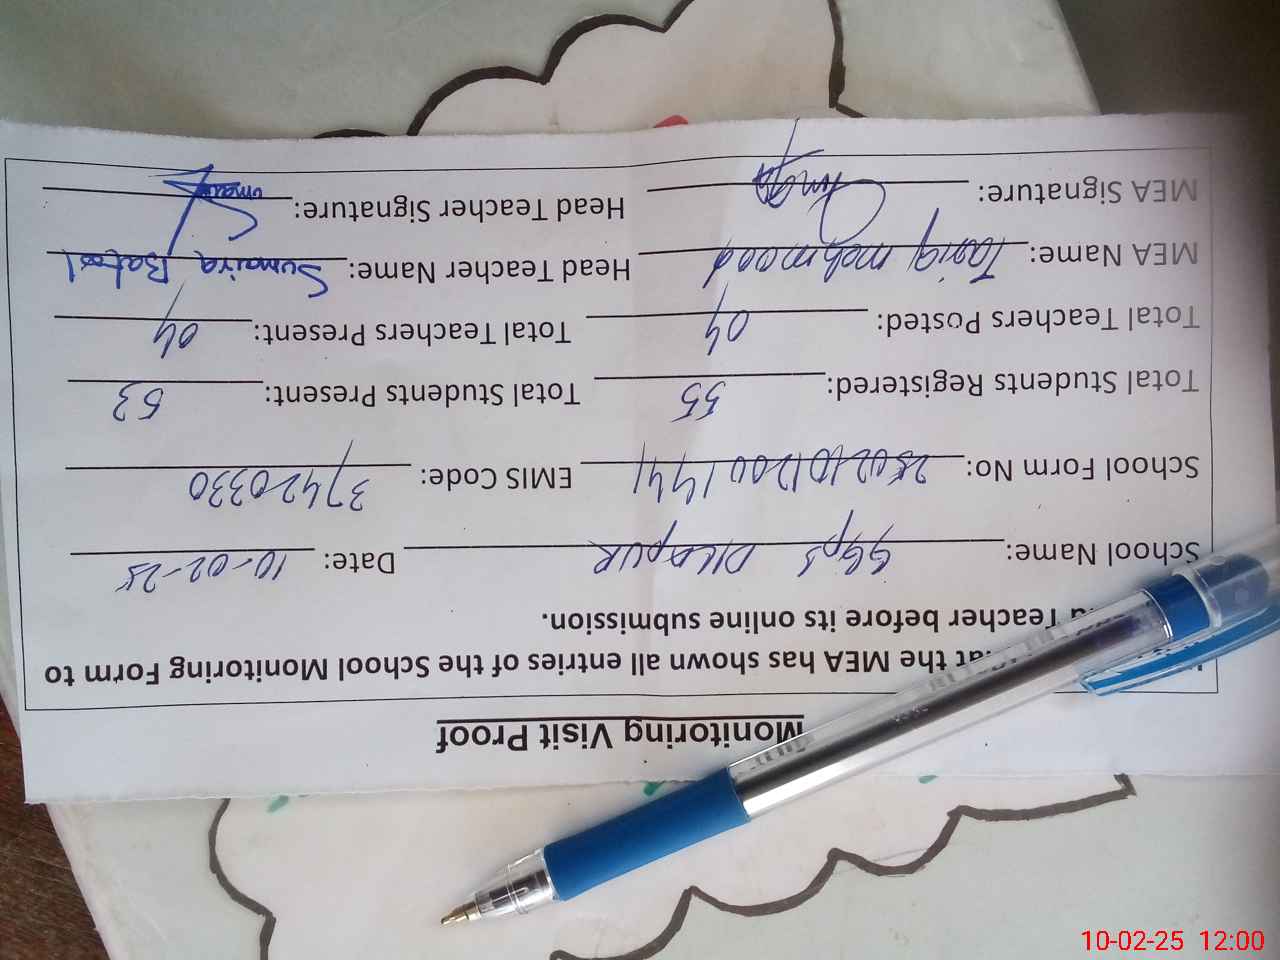 Monitoring Visit Proof
that the MEA has shown all entries of the School Monitoring Form to
Teacher before its online submission.
School Name: GGPS Date: 10-02-25
School Form No: EMIS Code: 37420330
Total Students Registered: 55 Total Students Present: 53
Total Teachers Posted: 04 Total Teachers Present: 04
MEA Name: Tariq mehmood Head Teacher Name: Sumaira Batool
MEA Signature: Head Teacher Signature: Sumaira
10-02-25 12:00